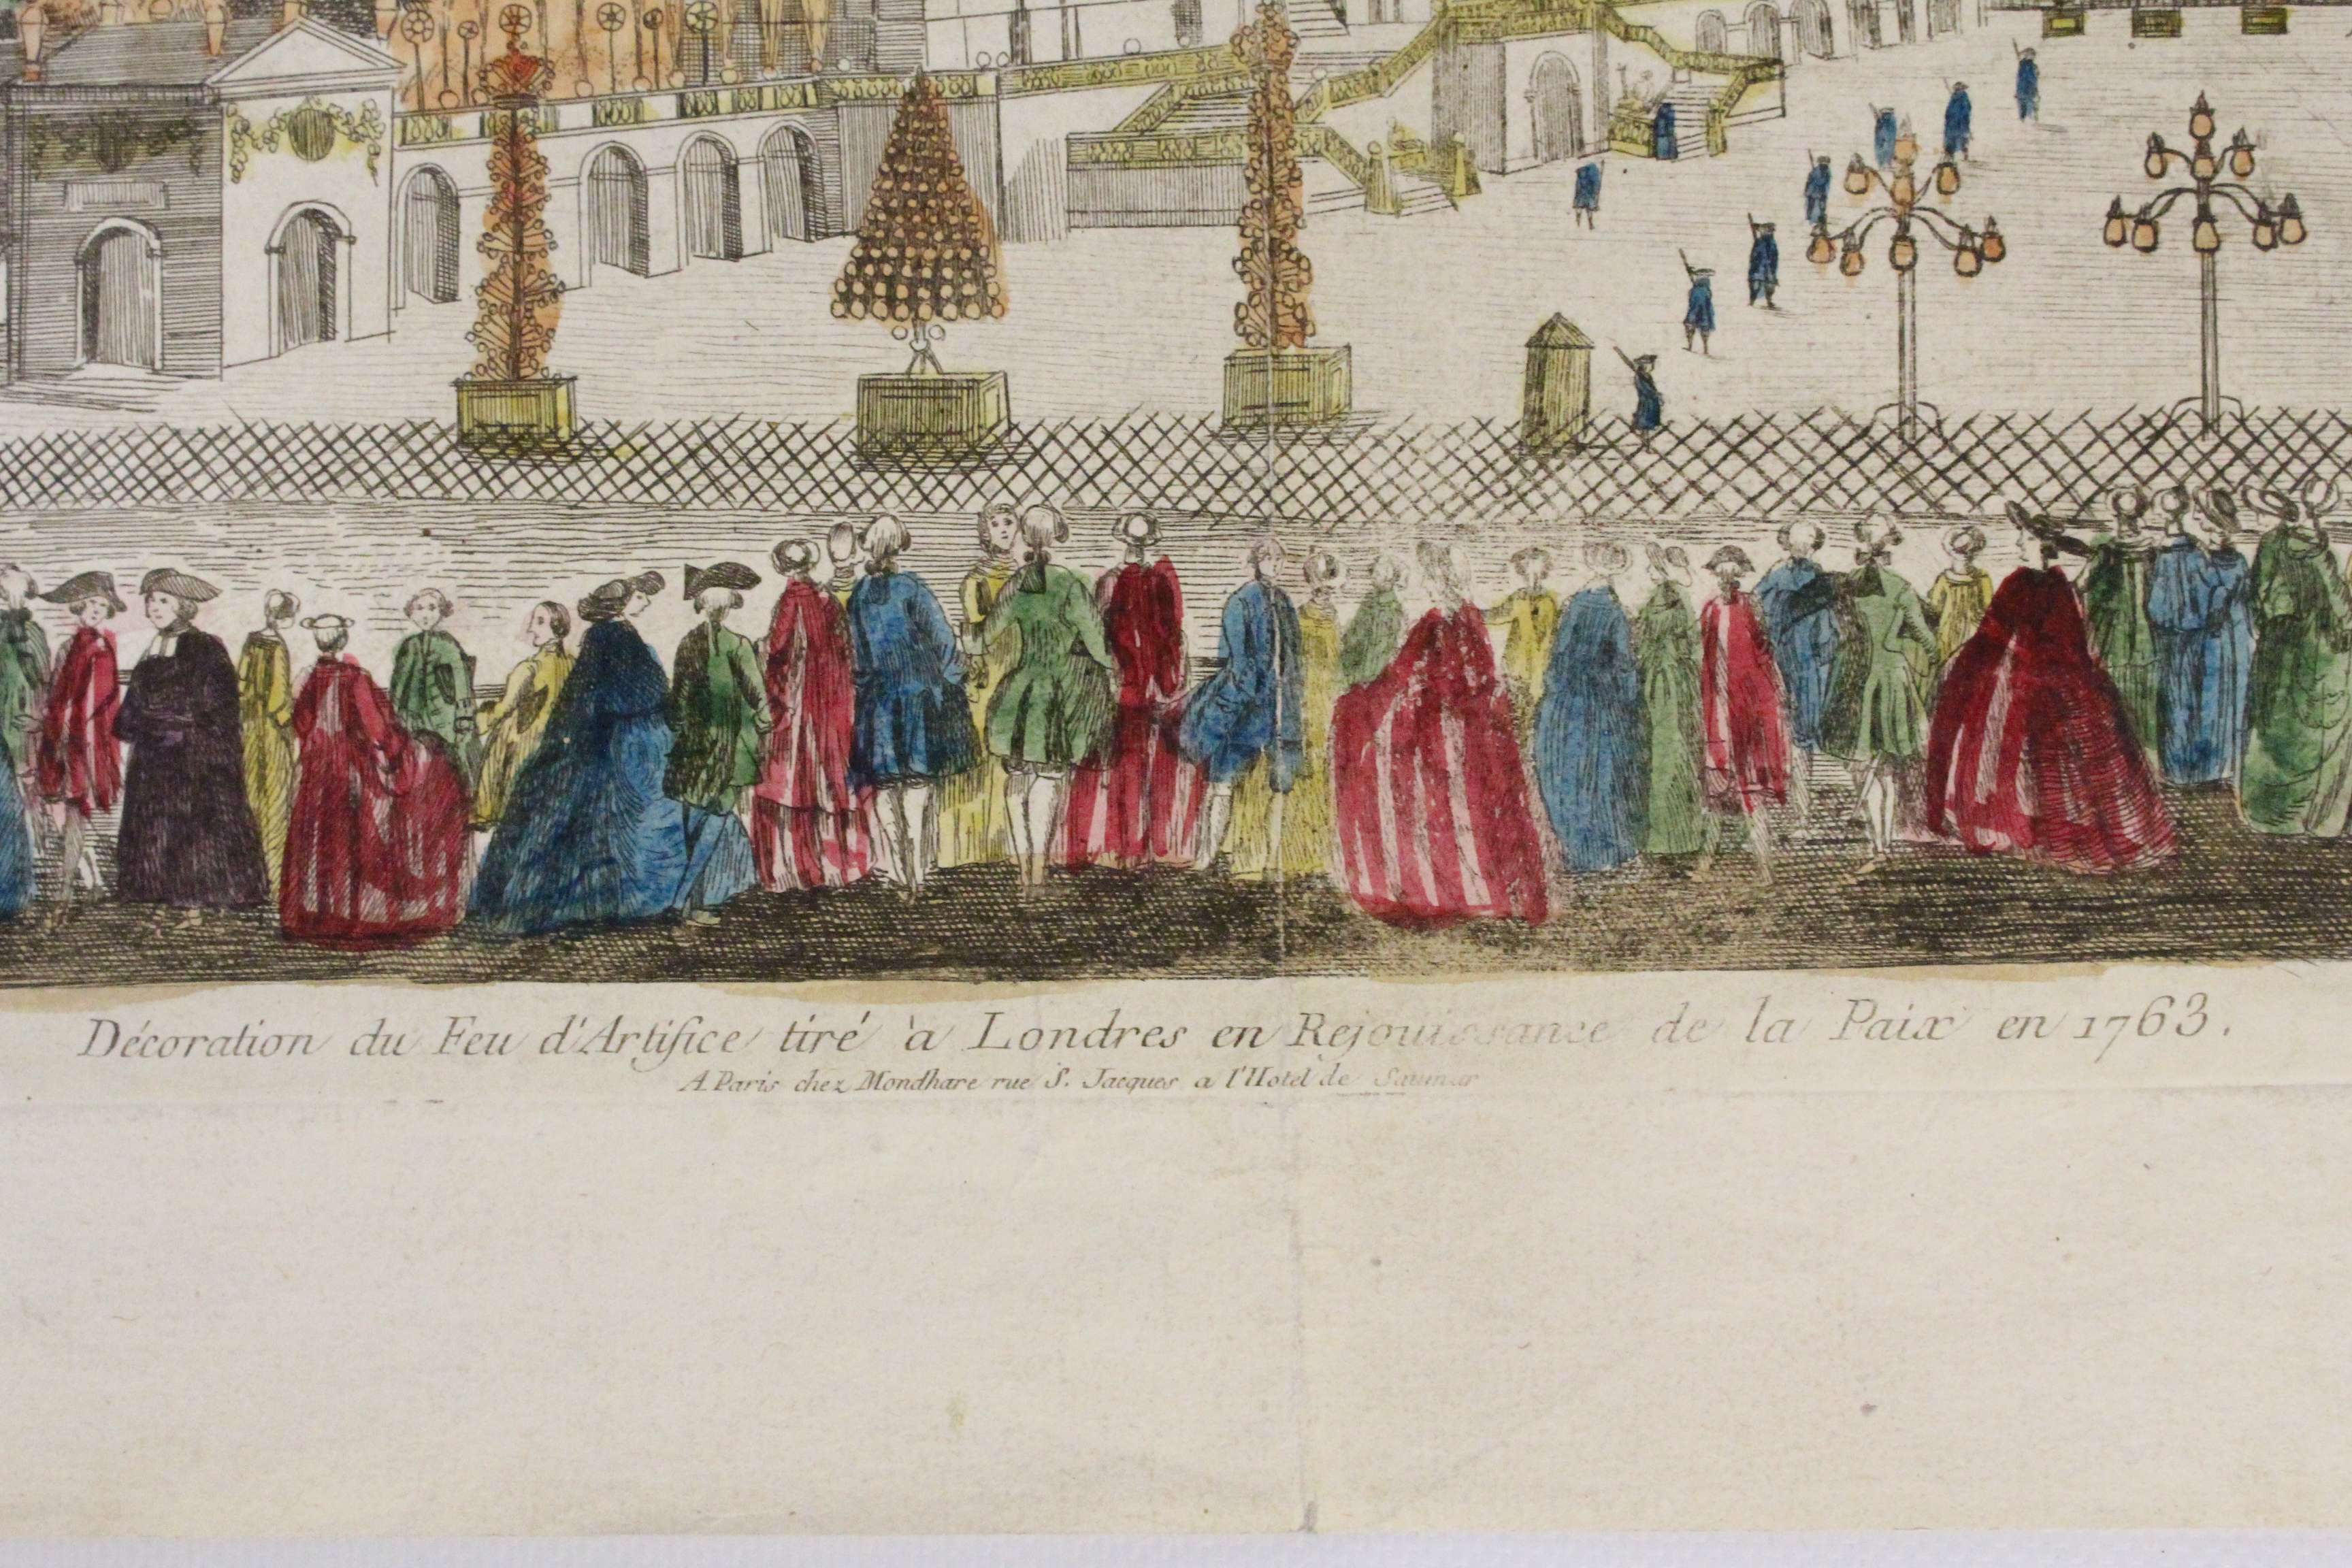 Décoration du Feu d'Artifice tiré à Londres en Rejouissance de la Paix en 1763.
A Paris chez Mondhare rue S. Jacques a l'Hotel de Saumur